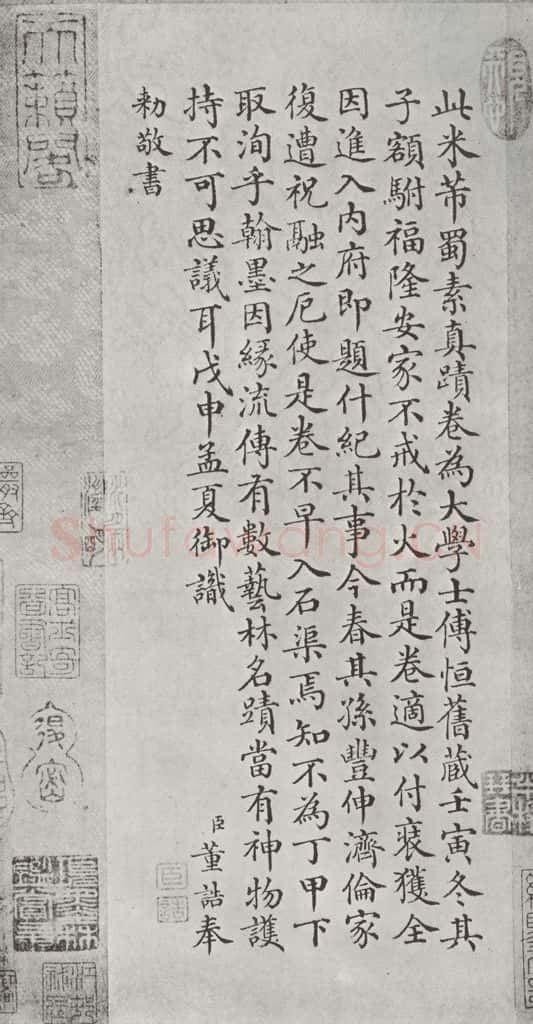 此米芾蜀素真蹟卷為大學士傅恒舊蔵壬寅冬其
子額駙福隆安家不戒於火而是卷適以付裱獲全
因進入内府即題什紀其事今春其孫豐伸濟倫家
復遭祝融之厄使是卷不早入石渠焉知不為丁甲下
取洵乎翰墨因縁流傳有數藝林名蹟當有神物護
持不可思議耳戊申孟夏御識
臣董誥奉
勅敬書
臣誥
天籟閣
Shufawang.CN